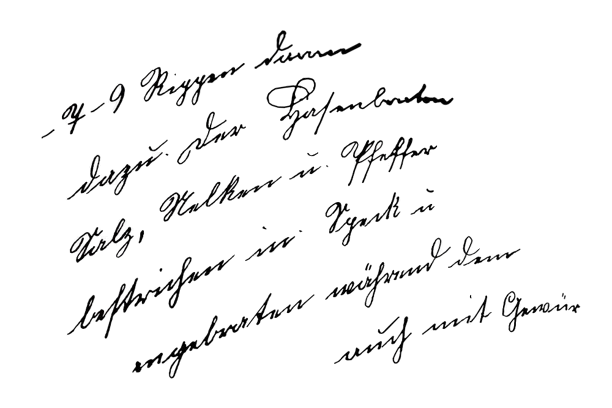 -7-9 Rippen daran
dazu. Der Hasenbraten
Salz, Nelken u. Pfeffer
bestrichen in Speck u
angebraten während dem
auch mit Gewür